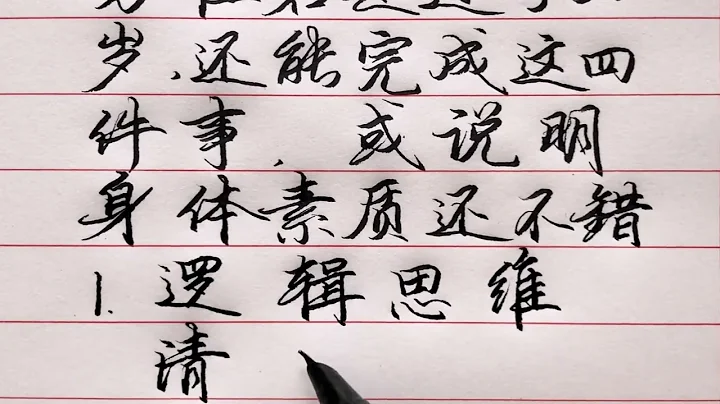 岁,还能完成这四
件事,或说明
身体素质还不错
1.逻辑思维
清